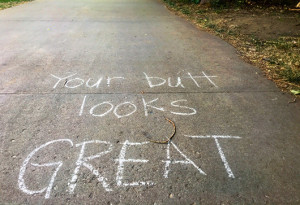 Your butt
looks
GREAT